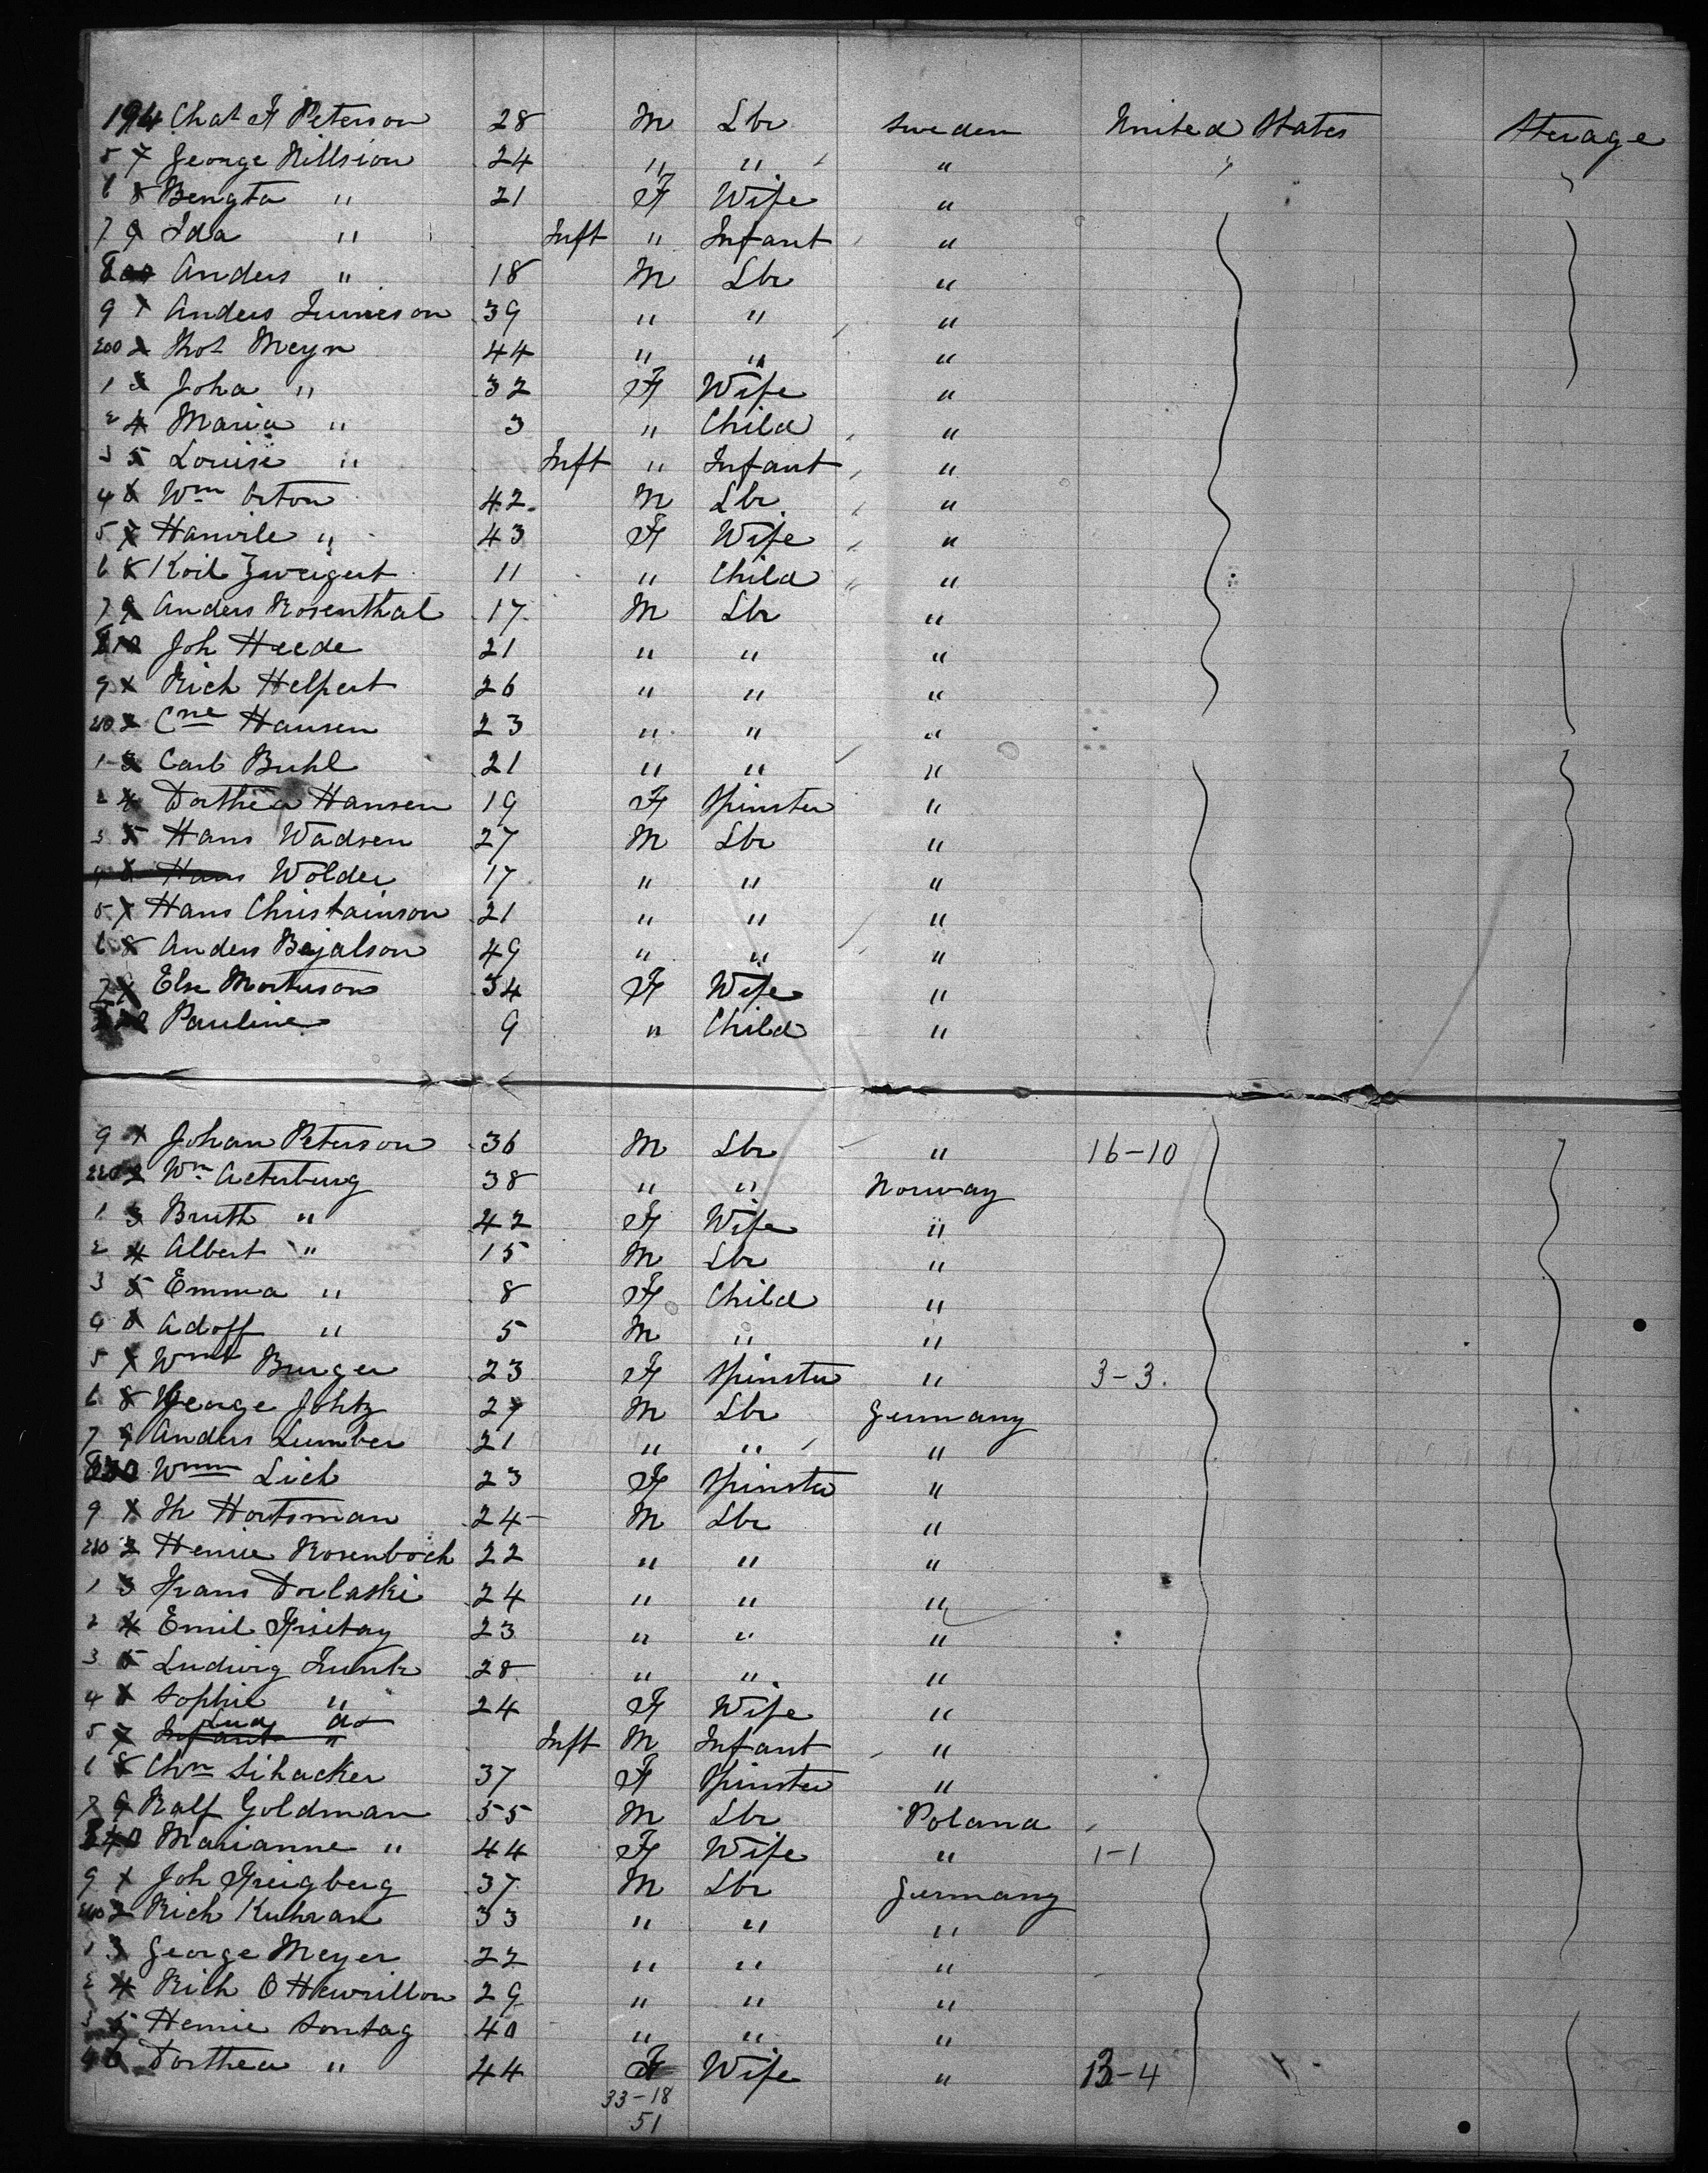 194 Chas F Peterson 28 M Lbr Sweden United States Sterage
5 7 George Nillsion 24 " " " "
6 8 Bengta " 21 F Wife "
7 9 Ida " Inft " Infant "
8 Anders " 18 M Lbr "
9 1 Anders 39 " " "
200 2 Meyn 44 " " "
1 3 Joha " 32 F Wife "
2 4 Maria " 3 " Child "
3 5 Louise " Inft " Infant "
4 6 Wm Orton 42 M Lbr "
5 7 " 43 F Wife "
6 8 Zweigert 11 " Child "
7 9 Anders Rosenthal 17 M Lbr "
8 10 Joh Heede 21 " " "
9 1 Rich Helpert 26 " " "
210 2 Cne Hansen 23 " " "
1 3 Carl Buhl 21 " " "
2 4 Dorthea Hansen 19 F Spinster "
3 5 Hans Wadsen 27 M Lbr "
4 6 Hans Wolder 17 " " "
5 7 Hans Christainson 21 " " "
6 8 Anders Bejalson 49 " " "
7 9 Else Mortuson 34 F Wife "
8 Pauline 9 " Child "
9 1 Johan Peterson 36 M Lbr " 16-10
220 2 Wm Acterburg 38 " " Norway
1 3 Bruth " 42 F Wife "
2 4 Albert " 15 M Lbr "
3 5 Emma " 8 F Child "
4 6 Adoff " 5 M " "
5 7 Burger 23 F Spinster " 3-3
6 8 George Johtz 27 M Lbr Germany
7 9 Anders Lumber 21 " " "
8 230 Lich 23 F Spinster "
9 1 Hortsman 24 M Lbr "
230 2 Henie Rosenboch 22 " " "
1 3 Frans Dorlaski 24 " " "
2 4 Emil Frietay 23 " " "
3 5 Ludwig Funk 28 " " "
4 6 Sophie " 24 F Wife "
Lua do
5 7 Infant " Inft M Infant "
6 8 Chrn Sihacker 37 F Spinster "
7 9 Ralf Goldman 55 M Lbr Poland
8 40 Marianne " 44 F Wife " 1-1
9 1 Joh Freigberg 37 M Lbr Germany
240 2 Rich Kuhran 33 " " "
1 3 George Meyer 22 " " "
2 4 Rich O 29 " " "
3 5 Henie Sontag 40 " " "
4 6 Dorthea " 44 F Wife " 13-4
33-18
51